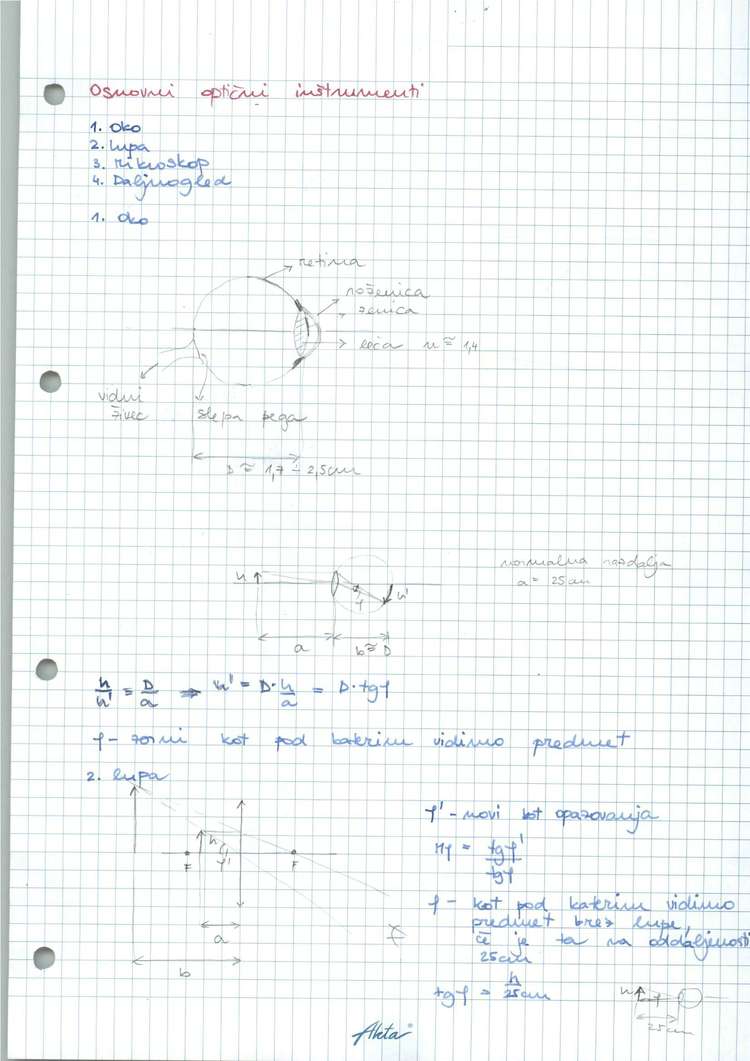 Osnovni optični inštrumenti
1. Oko
2. Lupa
3. Mikroskop
4. Daljnogled
1. Oko
retina
roženica
zenica
leča n ≈ 1,4
vidni
živec
slepa pega
D ≈ 1,7 ÷ 2,5cm
normalna razdalja
a = 25cm
h
φ
h'
a
b ≈ D
h/h' = D/a ⇒ h' = D · h/a = D · tgφ
φ - zorni kot pod katerim vidimo predmet
2. lupa
φ' - novi kot opazovanja
h
φ'
F
F
Mφ = tgφ'/tgφ
φ - kot pod katerim vidimo
predmet brez lupe,
če je ta na oddaljenosti
25cm
a
b
tgφ = h/25cm
h
φ
25cm
Akta